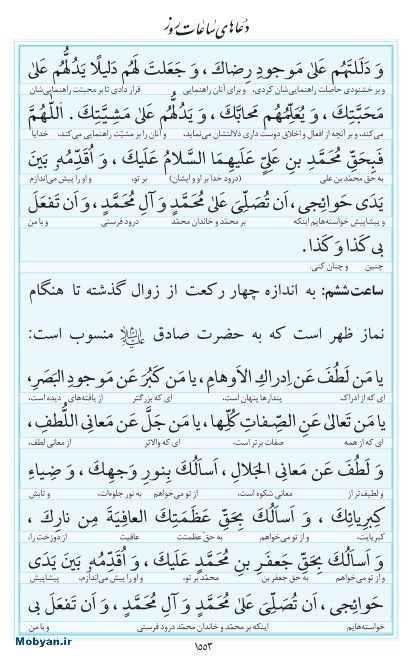 دعاهای ساعات روز
وَ دَلَلتَهُم عَلیٰ مَوجودِ رِضاكَ، وَ جَعَلتَ لَهُم دَلیلًا یَدُلُّهُم عَلیٰ
و بر خشنودی حاصلت راهنمایی‌شان کردی، و برای آنان راهنمایی قرار دادی تا بر محبتت راهنمایی‌شان
مَحَبَّتِكَ، وَ یُعَلِّمُهُم مَحابَّكَ، وَ یَدُلُّهُم عَلیٰ مَشِیَّتِكَ. اَللّٰهُمَّ
می‌کند، و بر آنچه از افعال و اخلاق دوست داری دلالتشان می‌نماید، و آنان را بر مشیّتت راهنمایی می‌کند. خدایا
فَبِحَقِّ مُحَمَّدِ بنِ عَلِیٍّ عَلَیهِمَا السَّلامُ عَلَیكَ، وَ اُقَدِّمُهُ بَینَ
به حق محمّد بن علی (درود خدا بر او و ایشان) بر تو، و او را پیش می‌اندازم
یَدَی حَوائِجی، اَن تُصَلِّیَ عَلیٰ مُحَمَّدٍ وَ آلِ مُحَمَّدٍ، وَ اَن تَفعَلَ
و پیشاپیش خواسته‌هایم اینکه بر محمّد و خاندان محمّد درود فرستی و با من
بی كَذا وَ كَذا.
چنین و چنان کنی.
ساعت ششم: به اندازه چهار رکعت از زوال گذشته تا هنگام
نماز ظهر است که به حضرت صادق علیه‌السلام منسوب است:
یا مَن لَطُفَ عَن اِدراكِ الاَوهامِ، یا مَن كَبُرَ عَن مَوجودِ البَصَرِ،
ای که از ادراک پندارها پنهان است، ای که بزرگتر از یافته‌های دیده است،
یا مَن تَعالیٰ عَنِ الصِّفاتِ كُلِّها، یا مَن جَلَّ عَن مَعانِی اللُّطفِ،
ای که از همه صفات برتر است، ای که والاتر از معانی لطف،
وَ لَطُفَ عَن مَعانِی الجَلالِ، اَسأَلُكَ بِنورِ وَجهِكَ، وَ ضِیاءِ
و لطیف‌تر از معانی شکوه است، از تو می‌خواهم به نور جلوه‌ات، و تابش
كِبرِیائِكَ، وَ اَسأَلُكَ بِحَقِّ عَظَمَتِكَ العافِیَةَ مِن نارِكَ،
کبریایت، و از تو می‌خواهم به حق عظمتت عافیت از دوزخت را،
وَ اَسأَلُكَ بِحَقِّ جَعفَرِ بنِ مُحَمَّدٍ عَلَیكَ، وَ اُقَدِّمُهُ بَینَ یَدَی
و از تو می‌خواهم به حق جعفر بن محمّد بر تو، و او را پیش می‌اندازم، پیشاپیش
حَوائِجی، اَن تُصَلِّیَ عَلیٰ مُحَمَّدٍ وَ آلِ مُحَمَّدٍ، وَ اَن تَفعَلَ بی
خواسته‌هایم اینکه بر محمّد و خاندان محمّد درود فرستی و با من
۱۵۵۳
Mobyan.ir